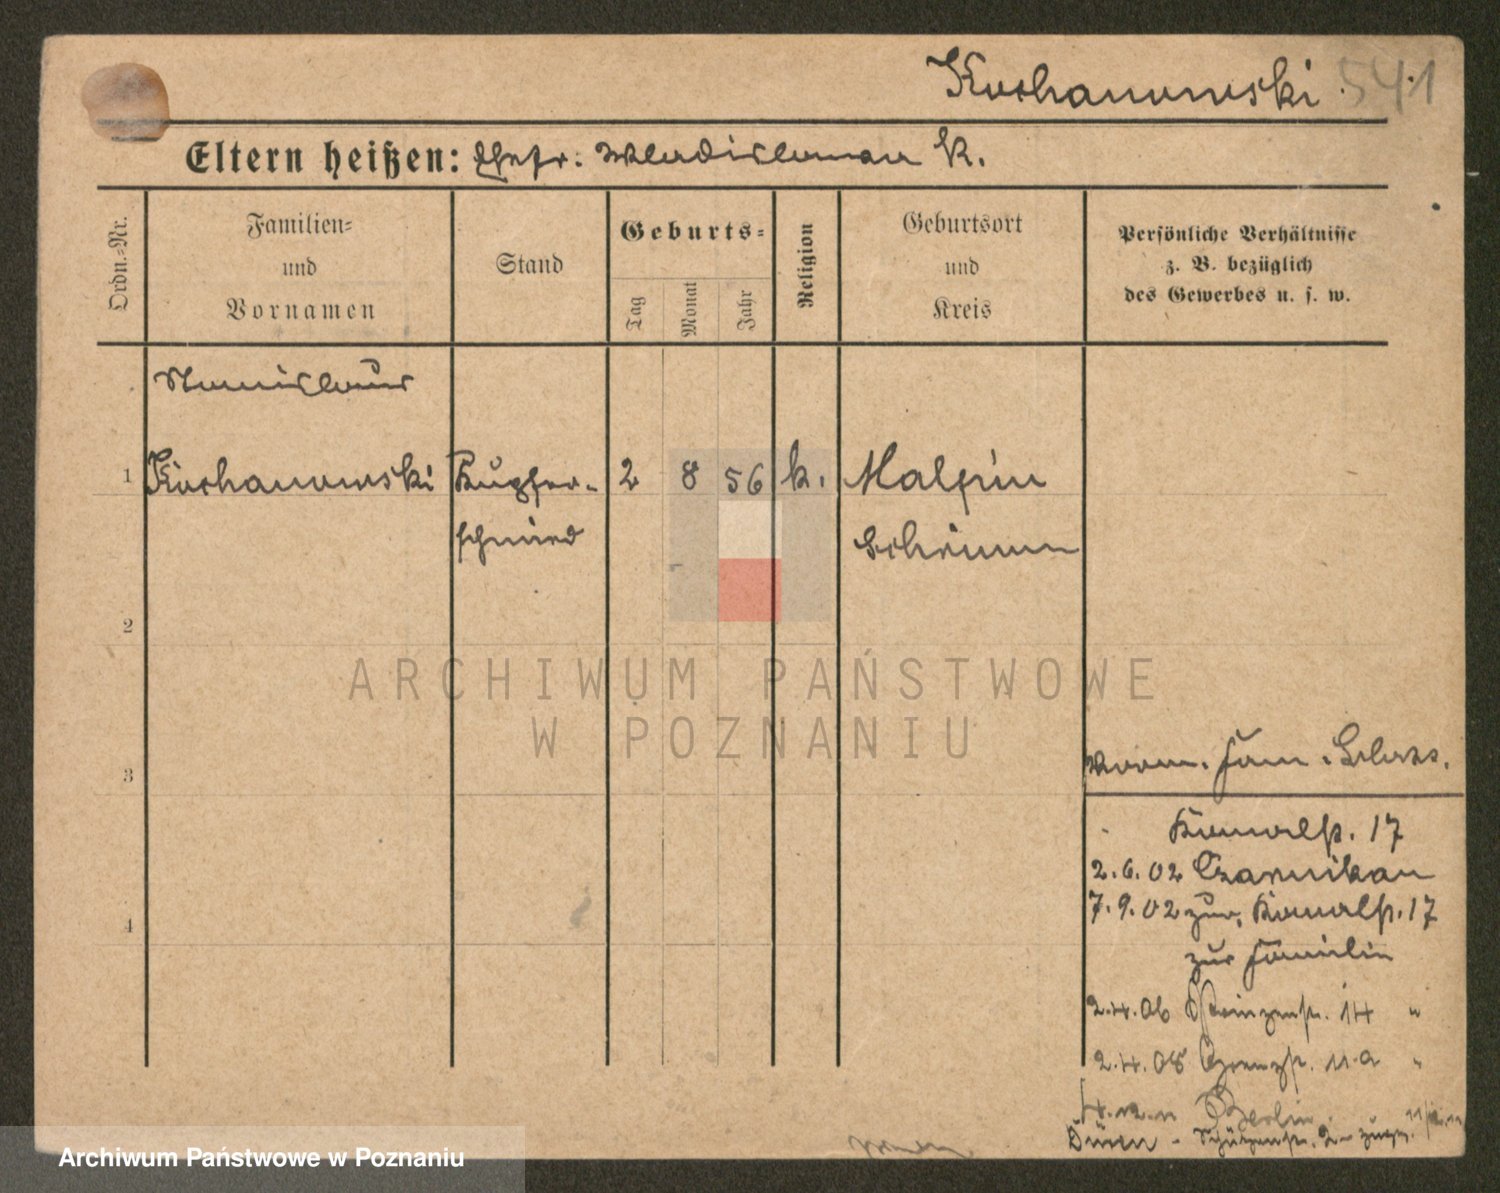 Kochanowski 541
Eltern heißen: Ehefr. Wladislawa K.
Ordn.-Nr.
Familien-
und
Vornamen
Stand
Geburts-
Tag
Monat
Jahr
Religion
Geburtsort
und
Kreis
Persönliche Verhältnisse
z. B. bezüglich
des Gewerbes u. s. w.
Stanislaus
1 Kochanowski Kupfer- 2 8 56 k. Malpin
schmied Schrimm
2
3
4
Fam.
Kanalstr. 17
2.6.02 Czarnikau
7.9.02 zur. Kanalstr. 17
zur Familie
2.4.06 14 "
2.4.08 Grenzstr. 11a "
Berlin
Düren -
ARCHIWUM PAŃSTWOWE
W POZNANIU
Archiwum Państwowe w Poznaniu